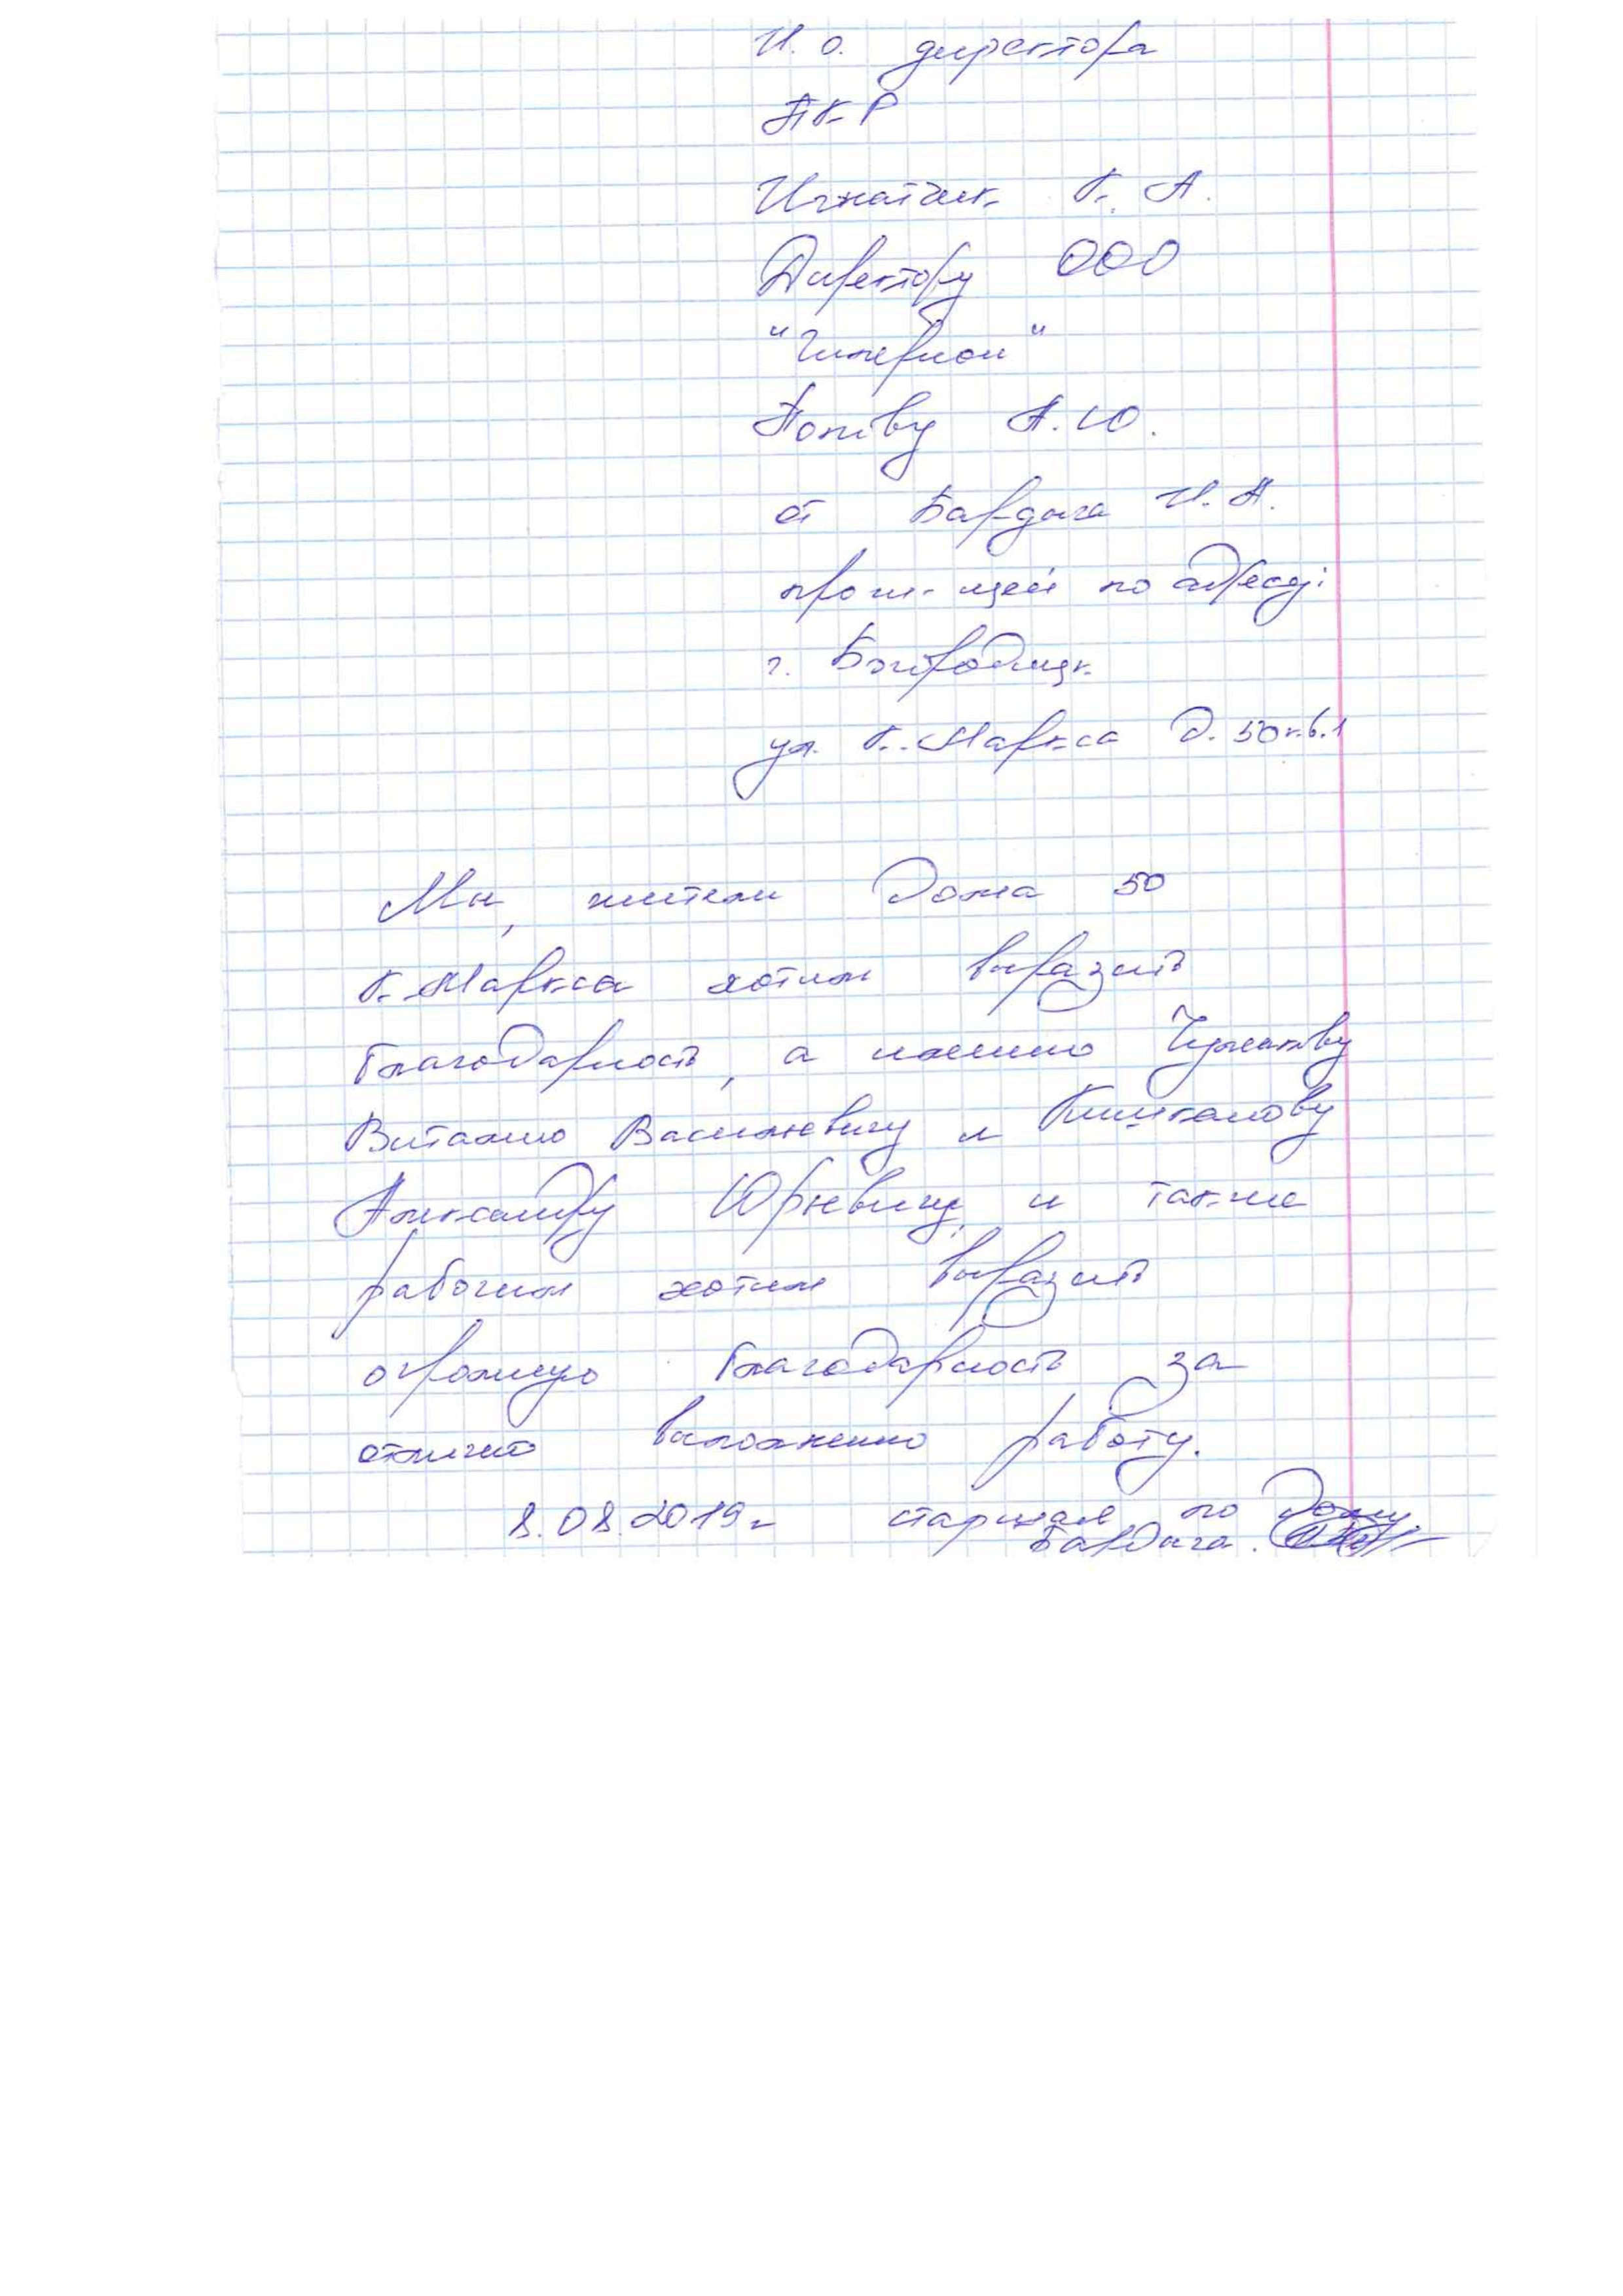 И. о. директора
ФКР
Игнатчик К. А.
Директору ООО
"Гиперион"
Попову А. Ю.
от Бардага И. А.
прож-щей по адресу:
г. Богородицк
ул. К. Маркса д. 50 кв. 1
Мы, жители дома 50
К. Маркса хотим выразить
благодарность, а именно
Виталию Васильевичу и
Александру Юрьевичу, и также
рабочим хотим выразить
огромную благодарность за
отлично выполненно работу.
8.08.2019г старшая по дому.
Бардага.